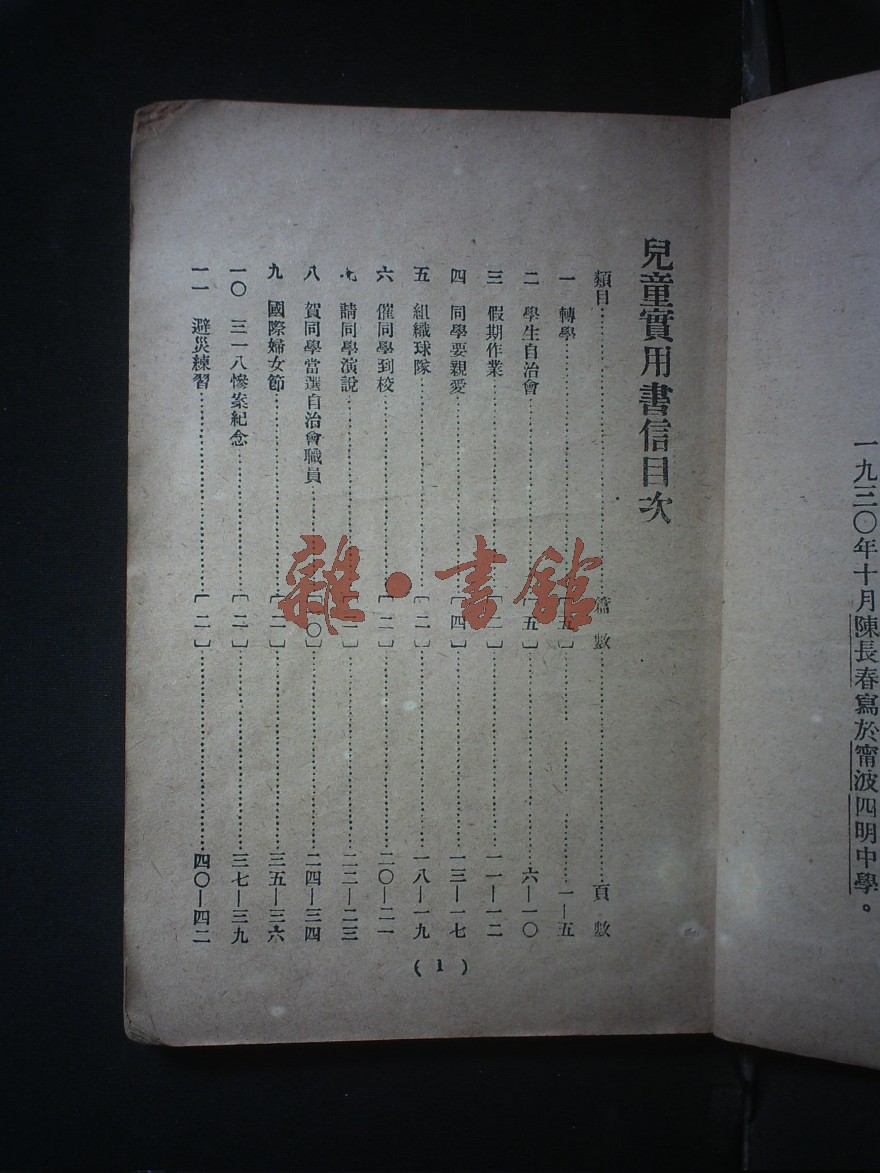 一九三〇年十月陳長春寫於甯波四明中學。
兒童實用書信目次
類目…………篇數…………頁數
一 轉學…………〔五〕…………一—五
二 學生自治會…………〔五〕…………六—一〇
三 假期作業…………〔二〕…………一一—一二
四 同學要親愛…………〔四〕…………一三—一七
五 組織球隊…………〔二〕…………一八—一九
六 催同學到校…………〔二〕…………二〇—二一
七 請同學演說…………〔二〕…………二二—二三
八 賀同學當選自治會職員…………〔一〇〕…………二四—三四
九 國際婦女節…………〔二〕…………三五—三六
一〇 三一八慘案紀念…………〔二〕…………三七—三九
一一 避災練習…………〔二〕…………四〇—四二
(1)
雜·書館